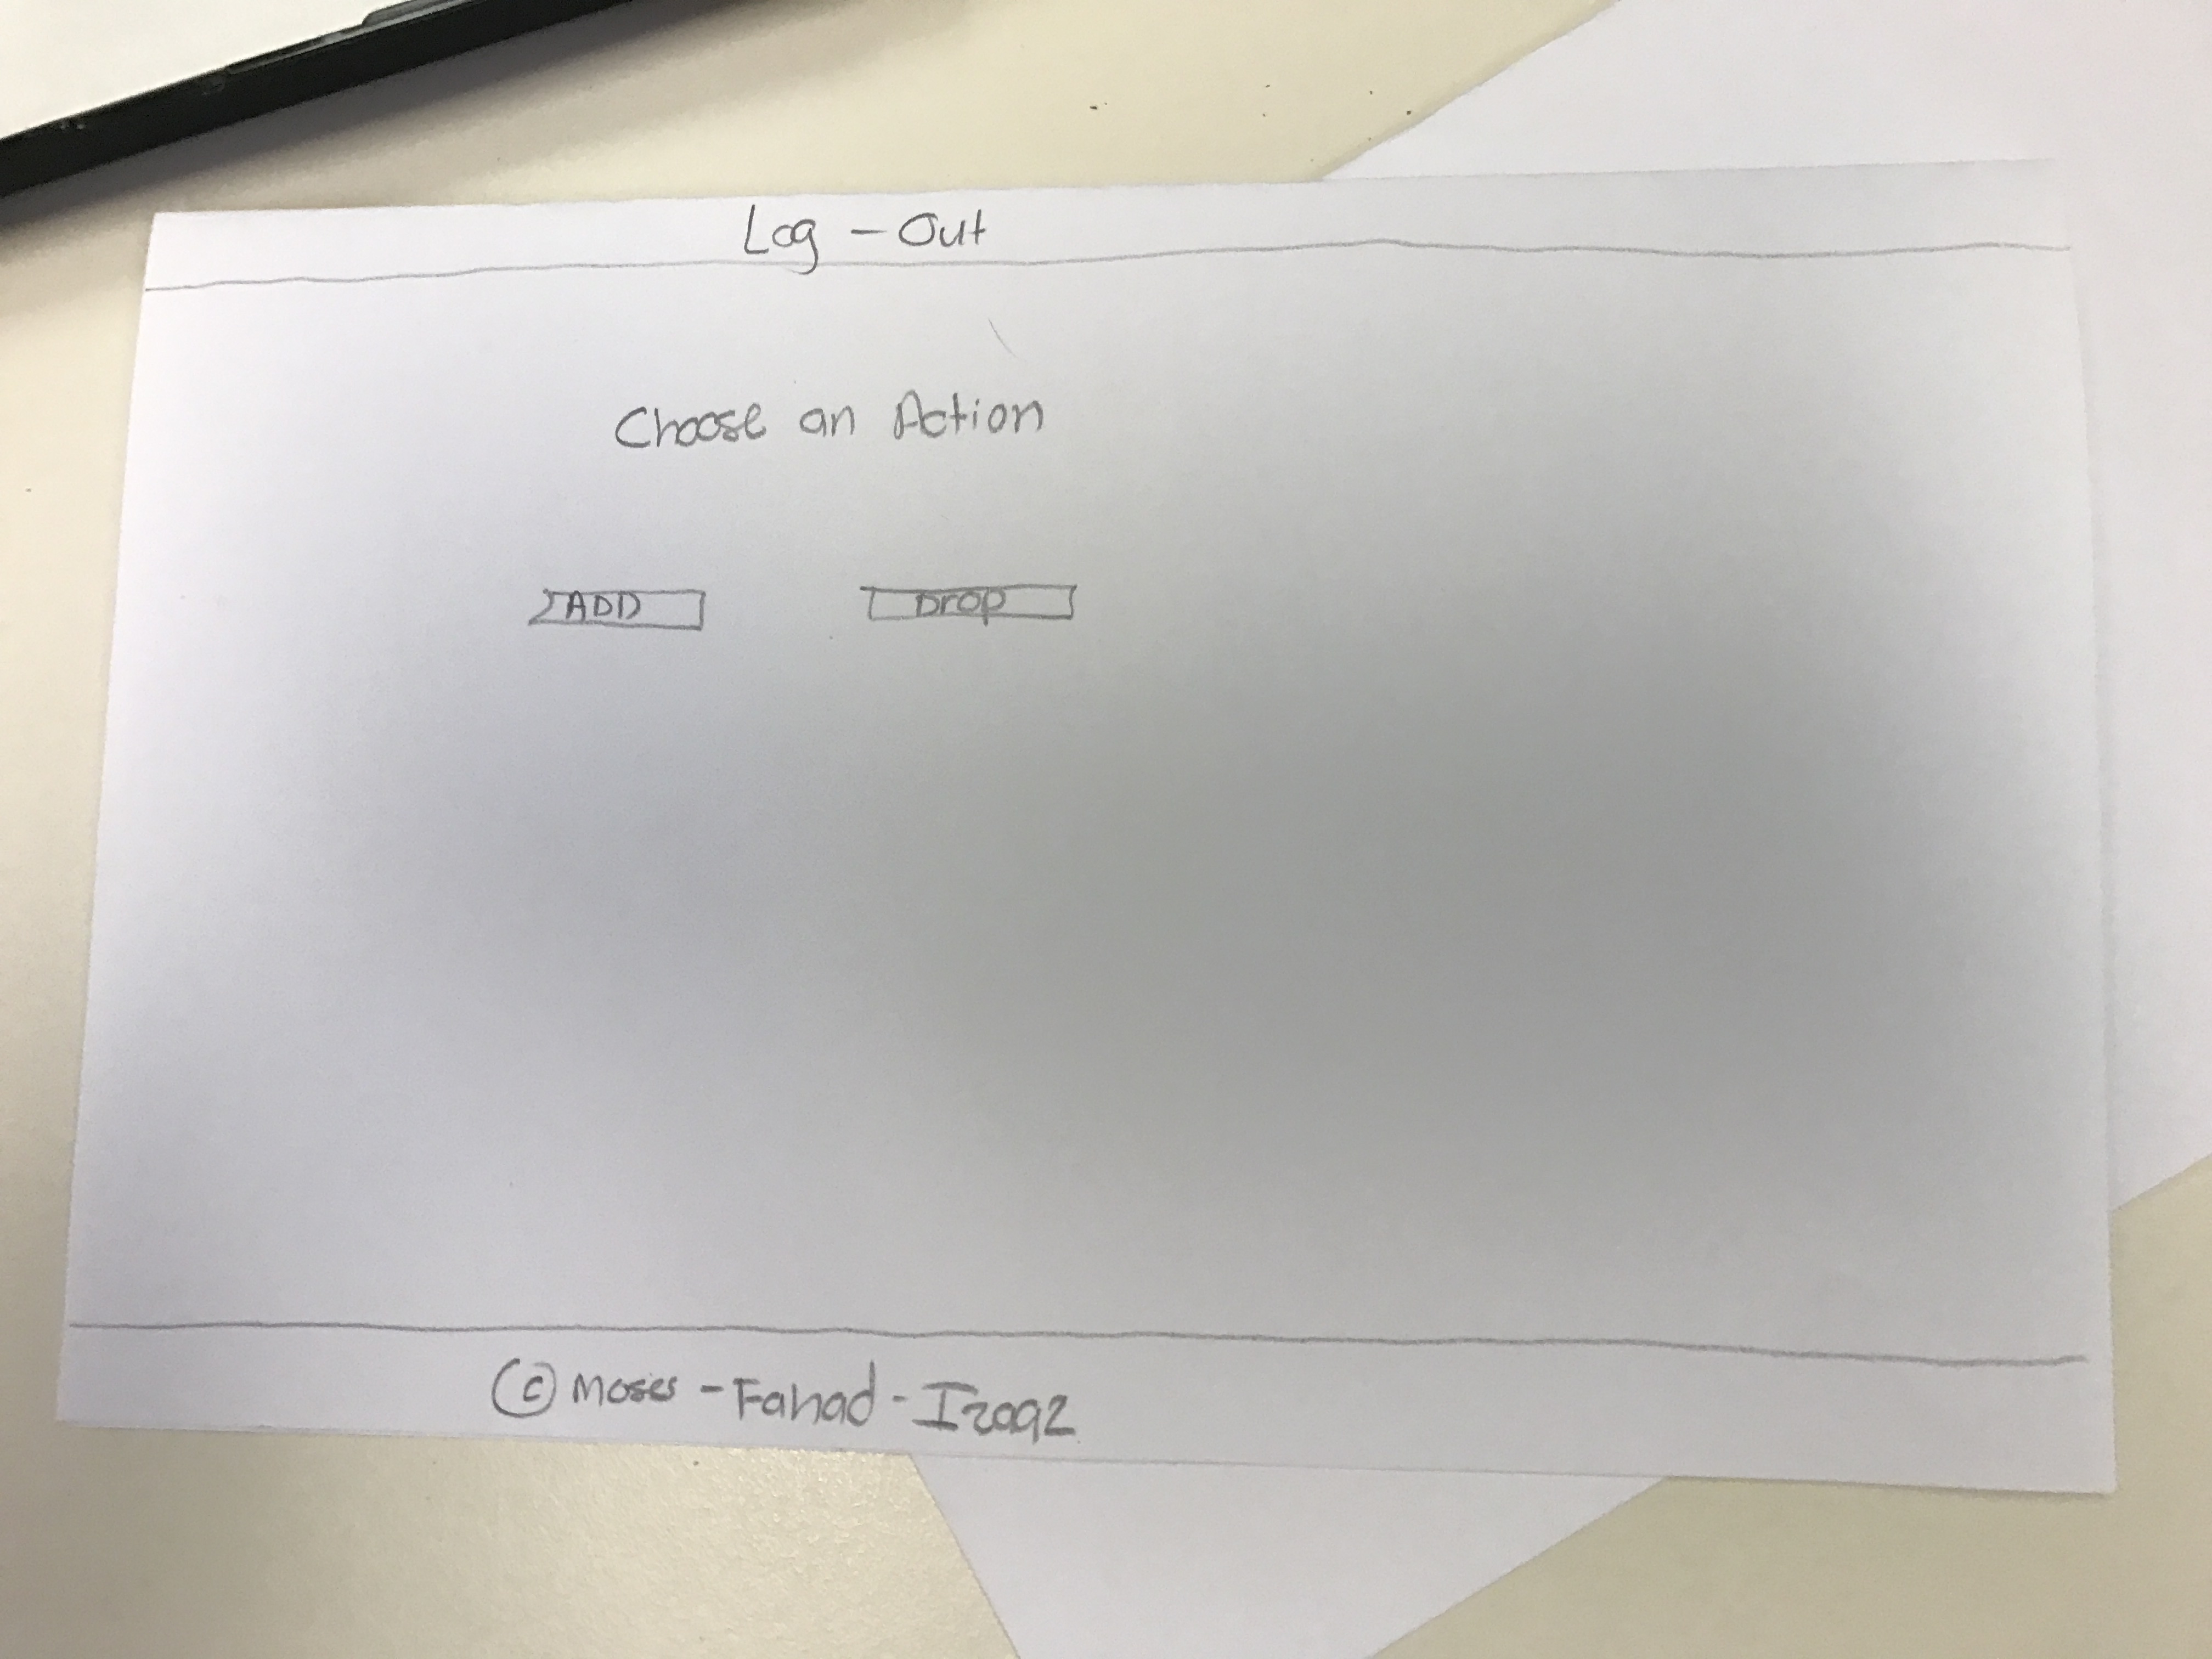 Log - Out
Choose an Action
ADD Drop
© Moses - Fahad -